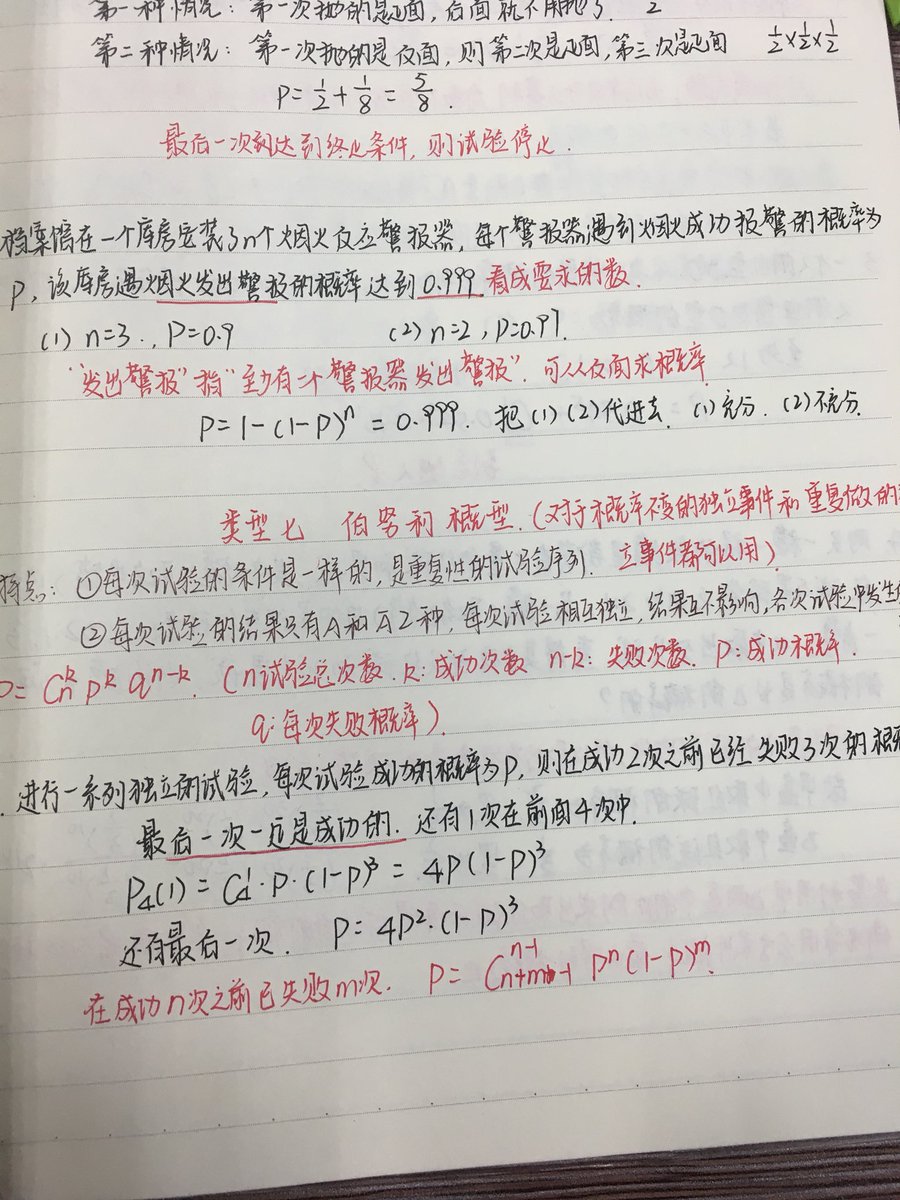 第一种情况：第一次抛的是正面，后面就不用抛了. 2
第二种情况：第一次抛的是反面，则第二次是正面，第三次是正面 ½×½×½
P=½+⅛=⅝.
最后一次到达到终止条件，则试验停止.
档案馆在一个库房安装了n个烟火反应警报器，每个警报器遇到烟火成功报警的概率为
P，该库房遇烟火发出警报的概率达到0.999 看成要求的数.
(1) n=3., P=0.9 (2) n=2, P=0.97.
“发出警报”指“至少有一个警报器发出警报”. 可以从反面求概率
P=1-(1-P)ⁿ=0.999. 把(1)(2)代进去. (1)充分. (2)不充分.
类型七 伯努利概型.(对于概率不变的独立事件和重复做的
特点：①每次试验的条件是一样的，是重复性的试验序列. 立事件都可以用)
②每次试验的结果只有A和Ā2种，每次试验相互独立，结果互不影响，各次试验中发生的
P=Cₙᵏ Pᵏ qⁿ⁻ᵏ. (n试验总次数. k:成功次数 n-k:失败次数. P:成功概率.
q:每次失败概率)
. 进行一系列独立的试验，每次试验成功的概率为P，则在成功2次之前已经失败3次的概率
最后一次一定是成功的. 还有1次在前面4次中.
P₄(1)=C₄¹·P·(1-P)³=4P(1-P)³
还有最后一次. P=4P²·(1-P)³
在成功n次之前已失败m次. P=Cₙ₊ₘ₋₁ⁿ⁻¹ Pⁿ(1-P)ᵐ.